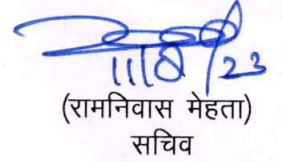 11/8/23
(रामनिवास मेहता)
सचिव